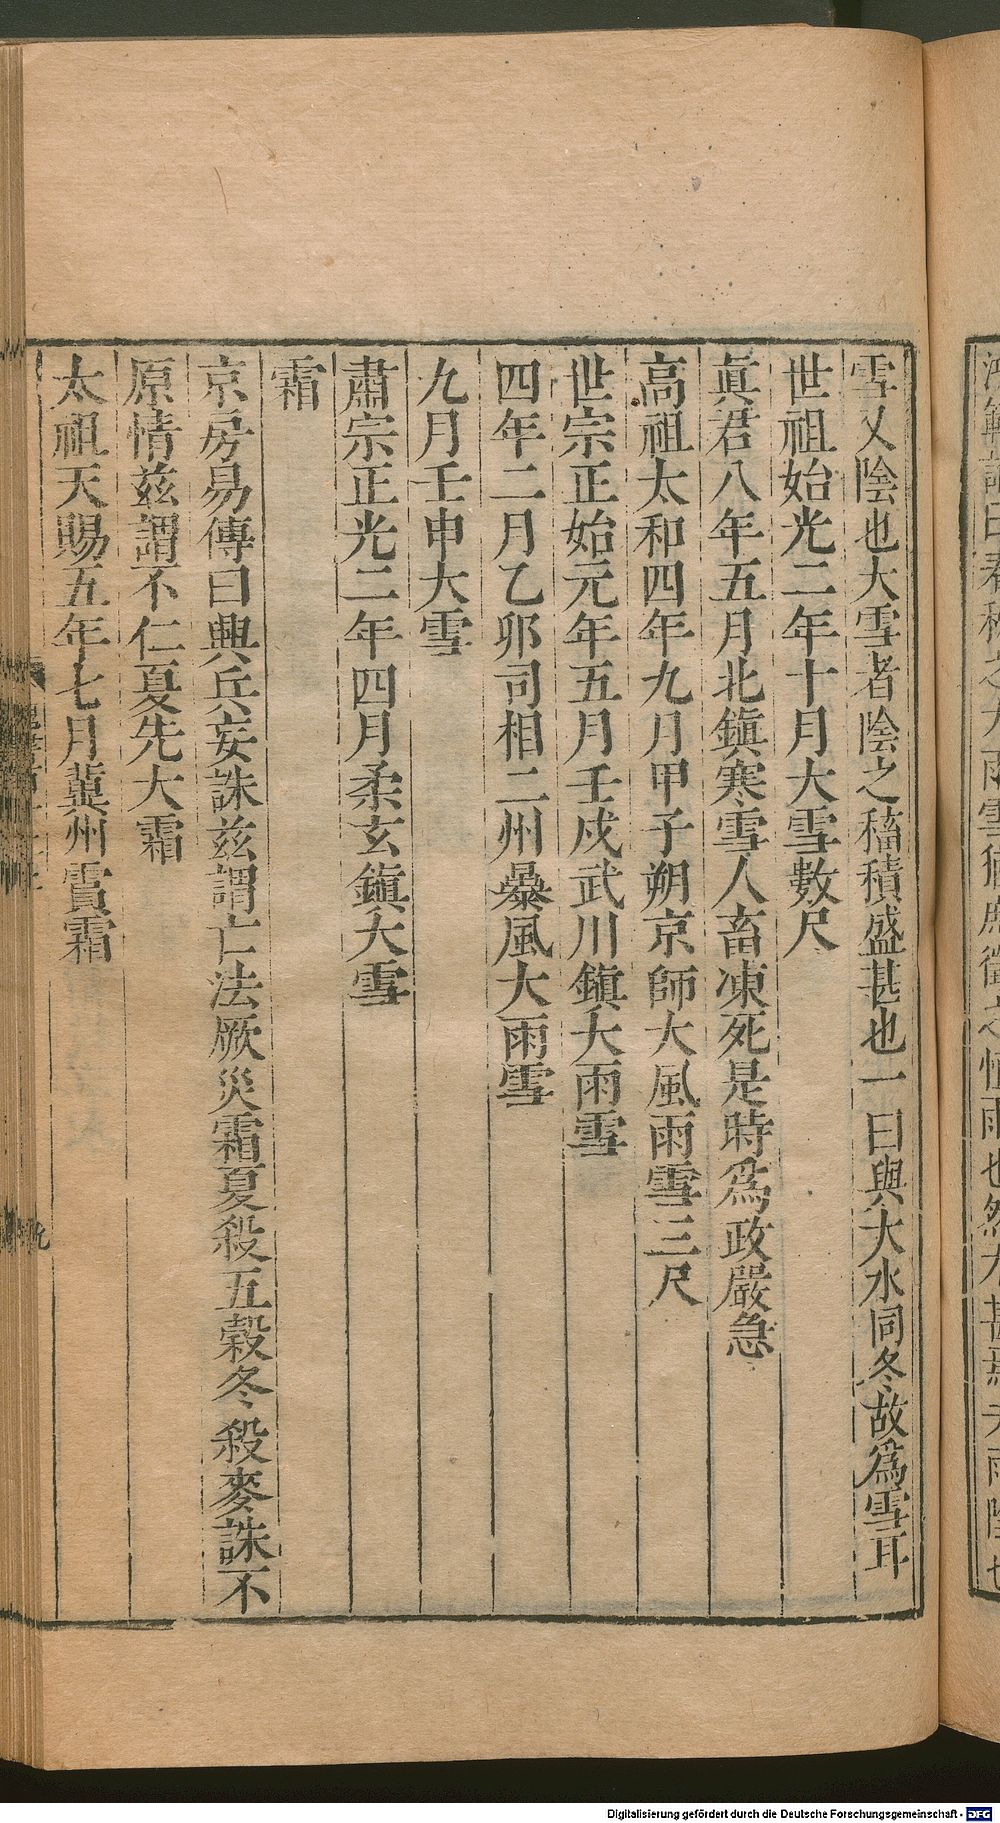 雪又陰也大雪者陰之穡積盛甚也一曰與大水同冬故爲雪耳
世祖始光二年十月大雪數尺
眞君八年五月北鎭寒雪人畜凍死是時爲政嚴急
高祖太和四年九月甲子朔京師大風雨雪三尺
世宗正始元年五月壬戌武川鎭大雨雪
四年二月乙卯司相二州暴風大雨雪
九月壬申大雪
肅宗正光二年四月柔玄鎭大雪
霜
京房易傳曰興兵妄誅兹謂亡法厥災霜夏殺五穀冬殺麥誅不
原情兹謂不仁夏先大霜
太祖天賜五年七月冀州霣霜
九
Digitalisierung gefördert durch die Deutsche Forschungsgemeinschaft - DFG